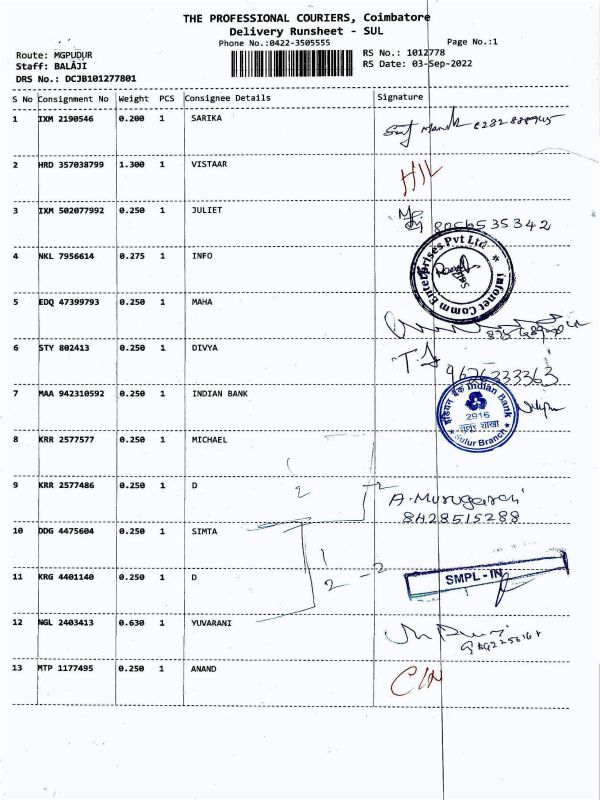 THE PROFESSIONAL COURIERS, Coimbatore
Delivery Runsheet - SUL
Phone No.:0422-3505555
Page No.:1
Route: MGPUDUR
RS No.: 1012778
Staff: BALAJI
RS Date: 03-Sep-2022
DRS No.: DCJB101277801
S No Consignment No Weight PCS Consignee Details Signature
1 IXM 2190546 0.200 1 SARIKA
2 HRD 357038799 1.300 1 VISTAAR
3 IXM 502077992 0.250 1 JULIET 8056535342
4 NKL 7956614 0.275 1 INFO
Infonet Comm Enterprises Pvt Ltd
5 EDQ 47399793 0.250 1 MAHA
6 STY 802413 0.250 1 DIVYA T.J
9626333363
7 MAA 942310592 0.250 1 INDIAN BANK
इंडियन बैंक Indian Bank
2916
सुलूर शाखा
Sulur Branch
8 KRR 2577577 0.250 1 MICHAEL
9 KRR 2577486 0.250 1 D 2 -2 A. Murugaresh
8428515288
10 DDG 4475604 0.250 1 SIMTA
11 KRG 4401140 0.250 1 D 2 -2 SMPL - IN
12 NGL 2403413 0.630 1 YUVARANI
13 MTP 1177495 0.250 1 ANAND